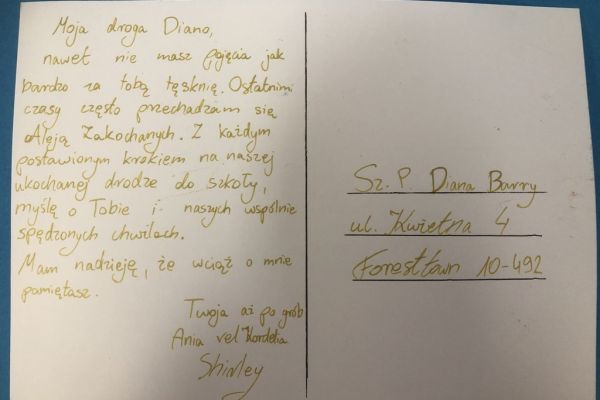 Moja droga Diano,
nawet nie masz pojęcia jak
bardzo za tobą tęsknię. Ostatnimi
czasy często przechadzam się
Aleją Zakochanych. Z każdym
postawionym krokiem na naszej
ukochanej drodze do szkoły,
myślę o Tobie i naszych wspólnie
spędzonych chwilach.
Mam nadzieję, że wciąż o mnie
pamiętasz.
Twoja aż po grób
Ania vel Kordelia
Shirley
Sz. P. Diana Barry
ul. Kwietna 4
Foresttown 10-492